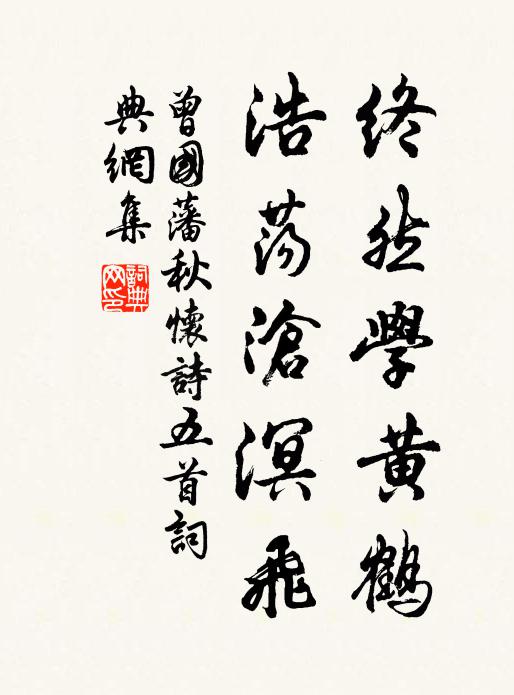 終然學黃鶴
浩蕩滄溟飛
曾國藩秋懷詩五首詞
典網集
詞典網印